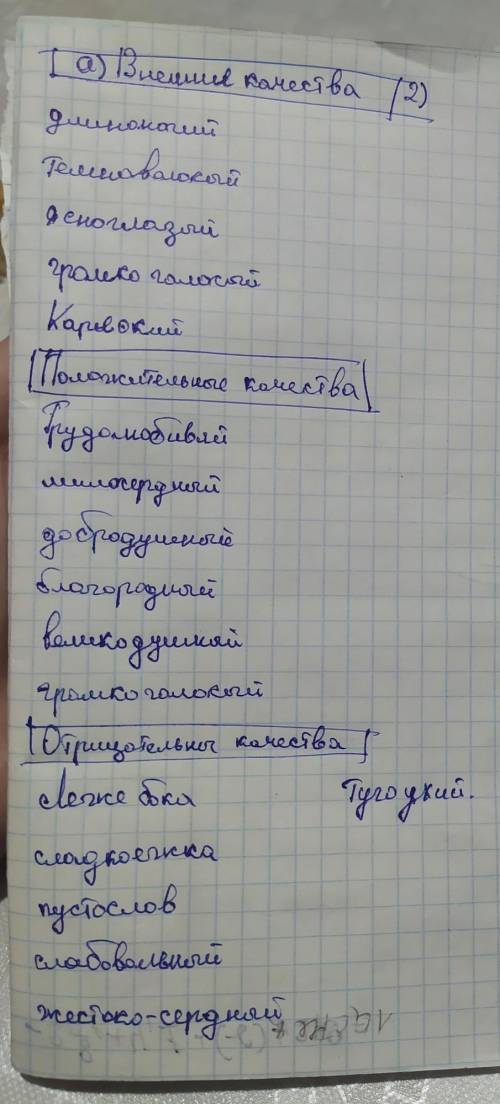 а) Внешние качества (2)
длиноногий
темноволокый
ясноглазый
громко голосый
Каревокий
Положительные качества
Трудолюбивый
милосердный
добродушный
благородный
великодушный
громко голосый
Отрицательны качества
Лежебока Тугоукий.
сладкоежка
пустослов
слабовольный
жестоко-сердный